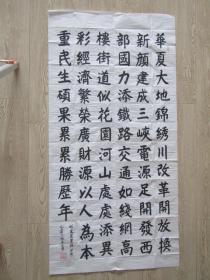 華夏大地錦綉川改革開放換
新顏建成三峽電源足開發西
部國力添鐵路交通如綫網高
樓街道似花園河山處處添異
彩經濟繁榮廣財源以人為本
重民生碩果累累勝歷年